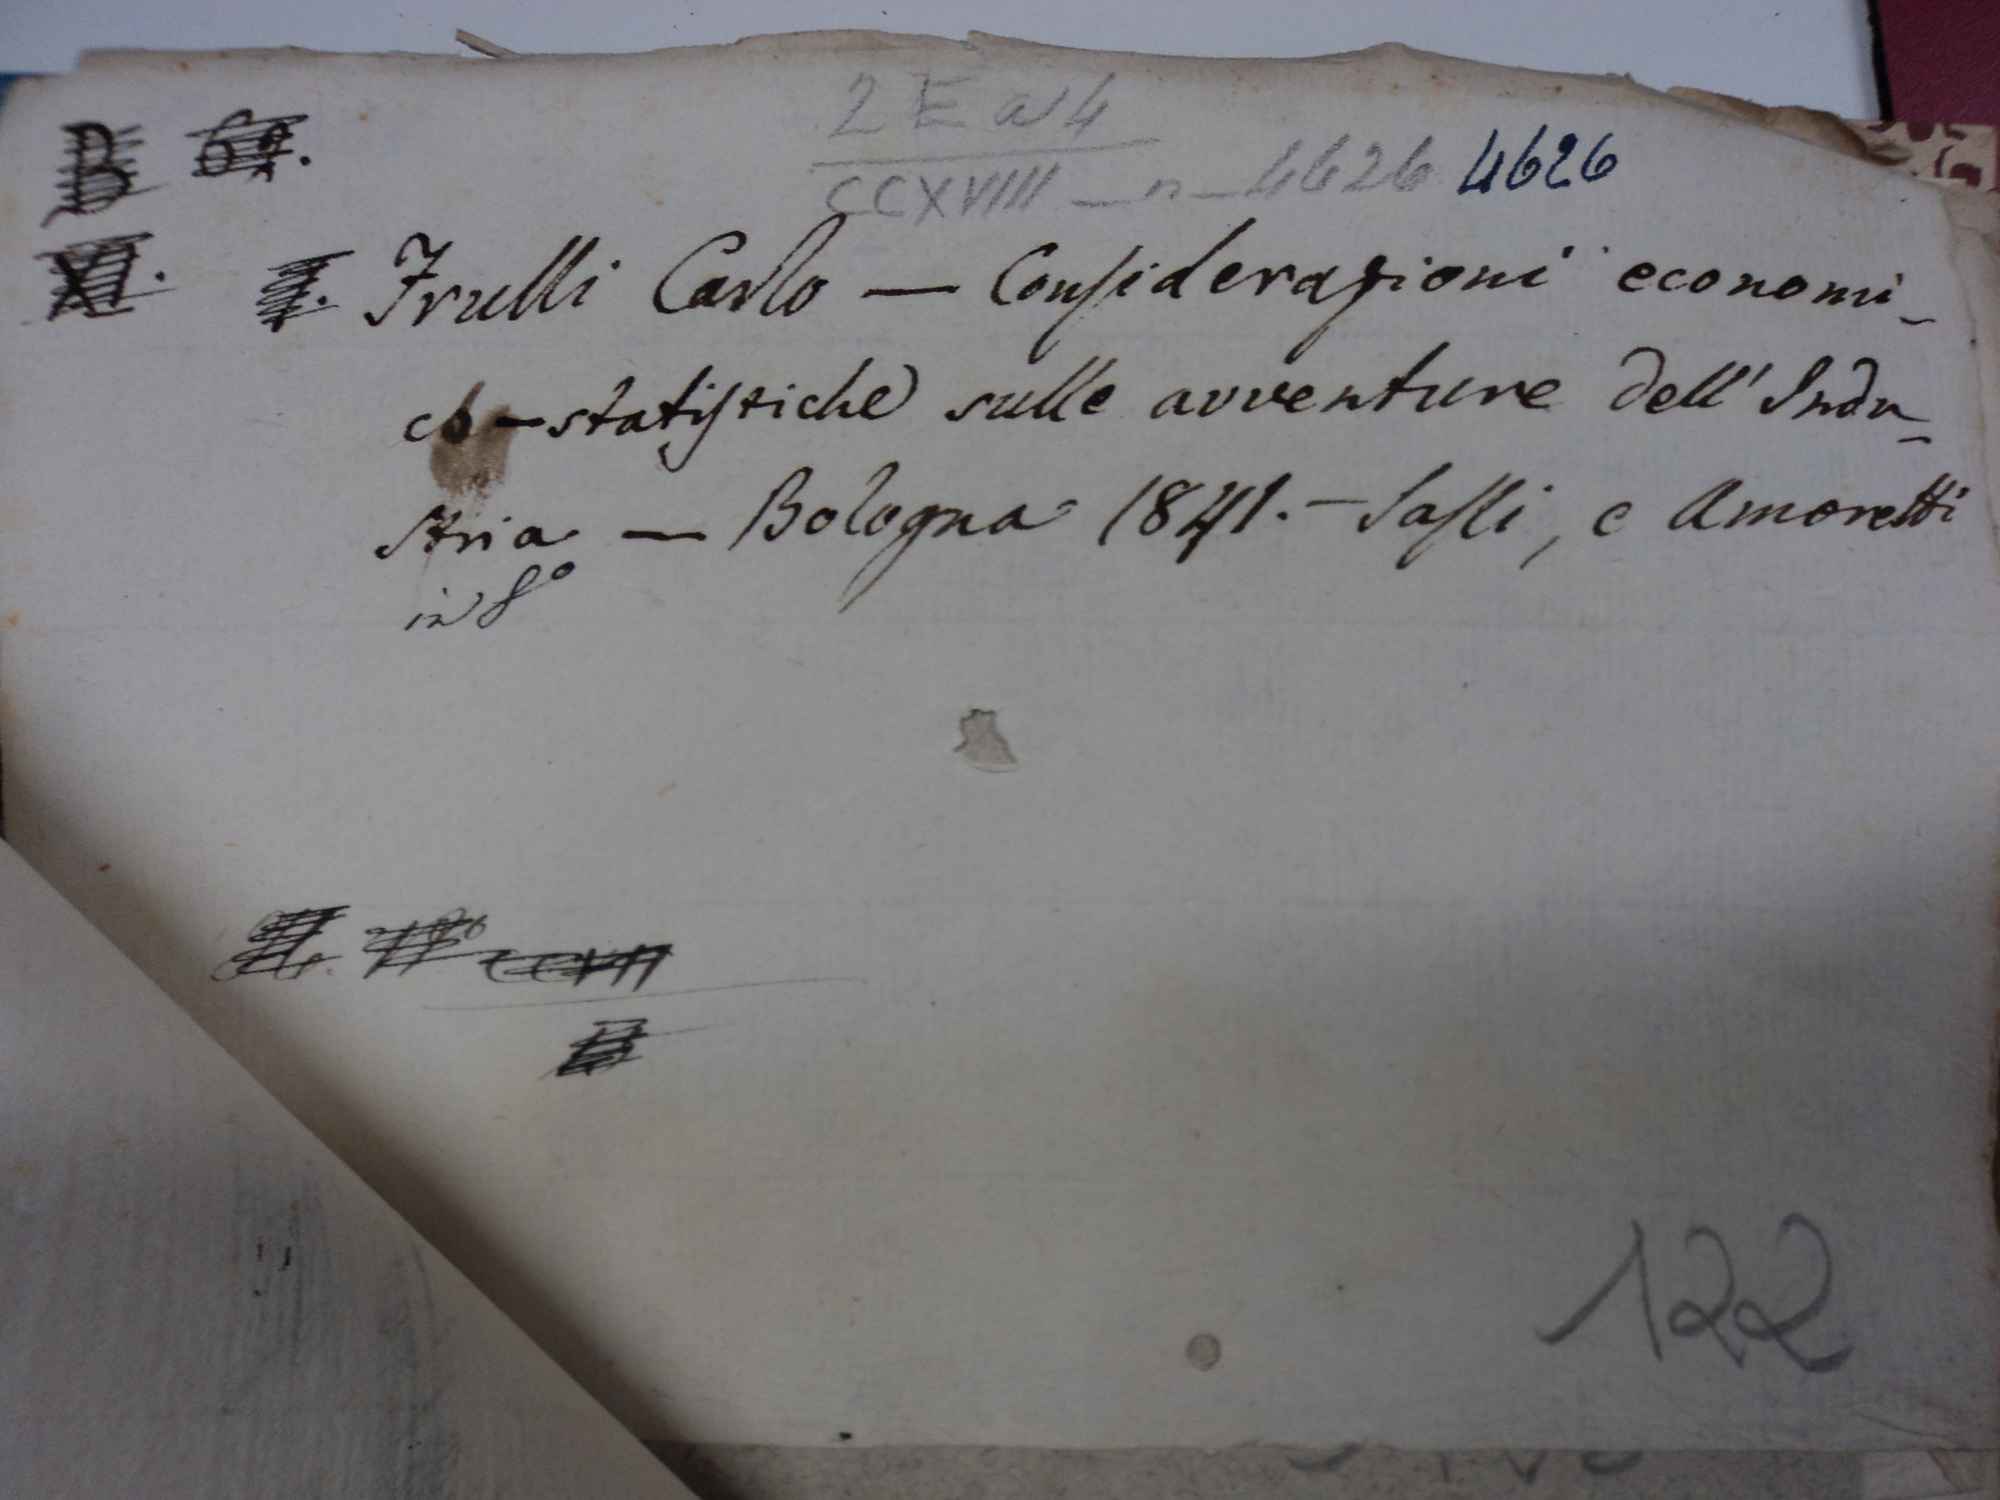 2 E a 4
B 69.
CCXVIII _ n _ 4626 4626
XI.
Frulli Carlo — Considerazioni economi_
co-statistiche sulle avventure dell'Indu_
stria — Bologna 1841. — Sassi, e Amoretti
in 8°
CCXVII
122